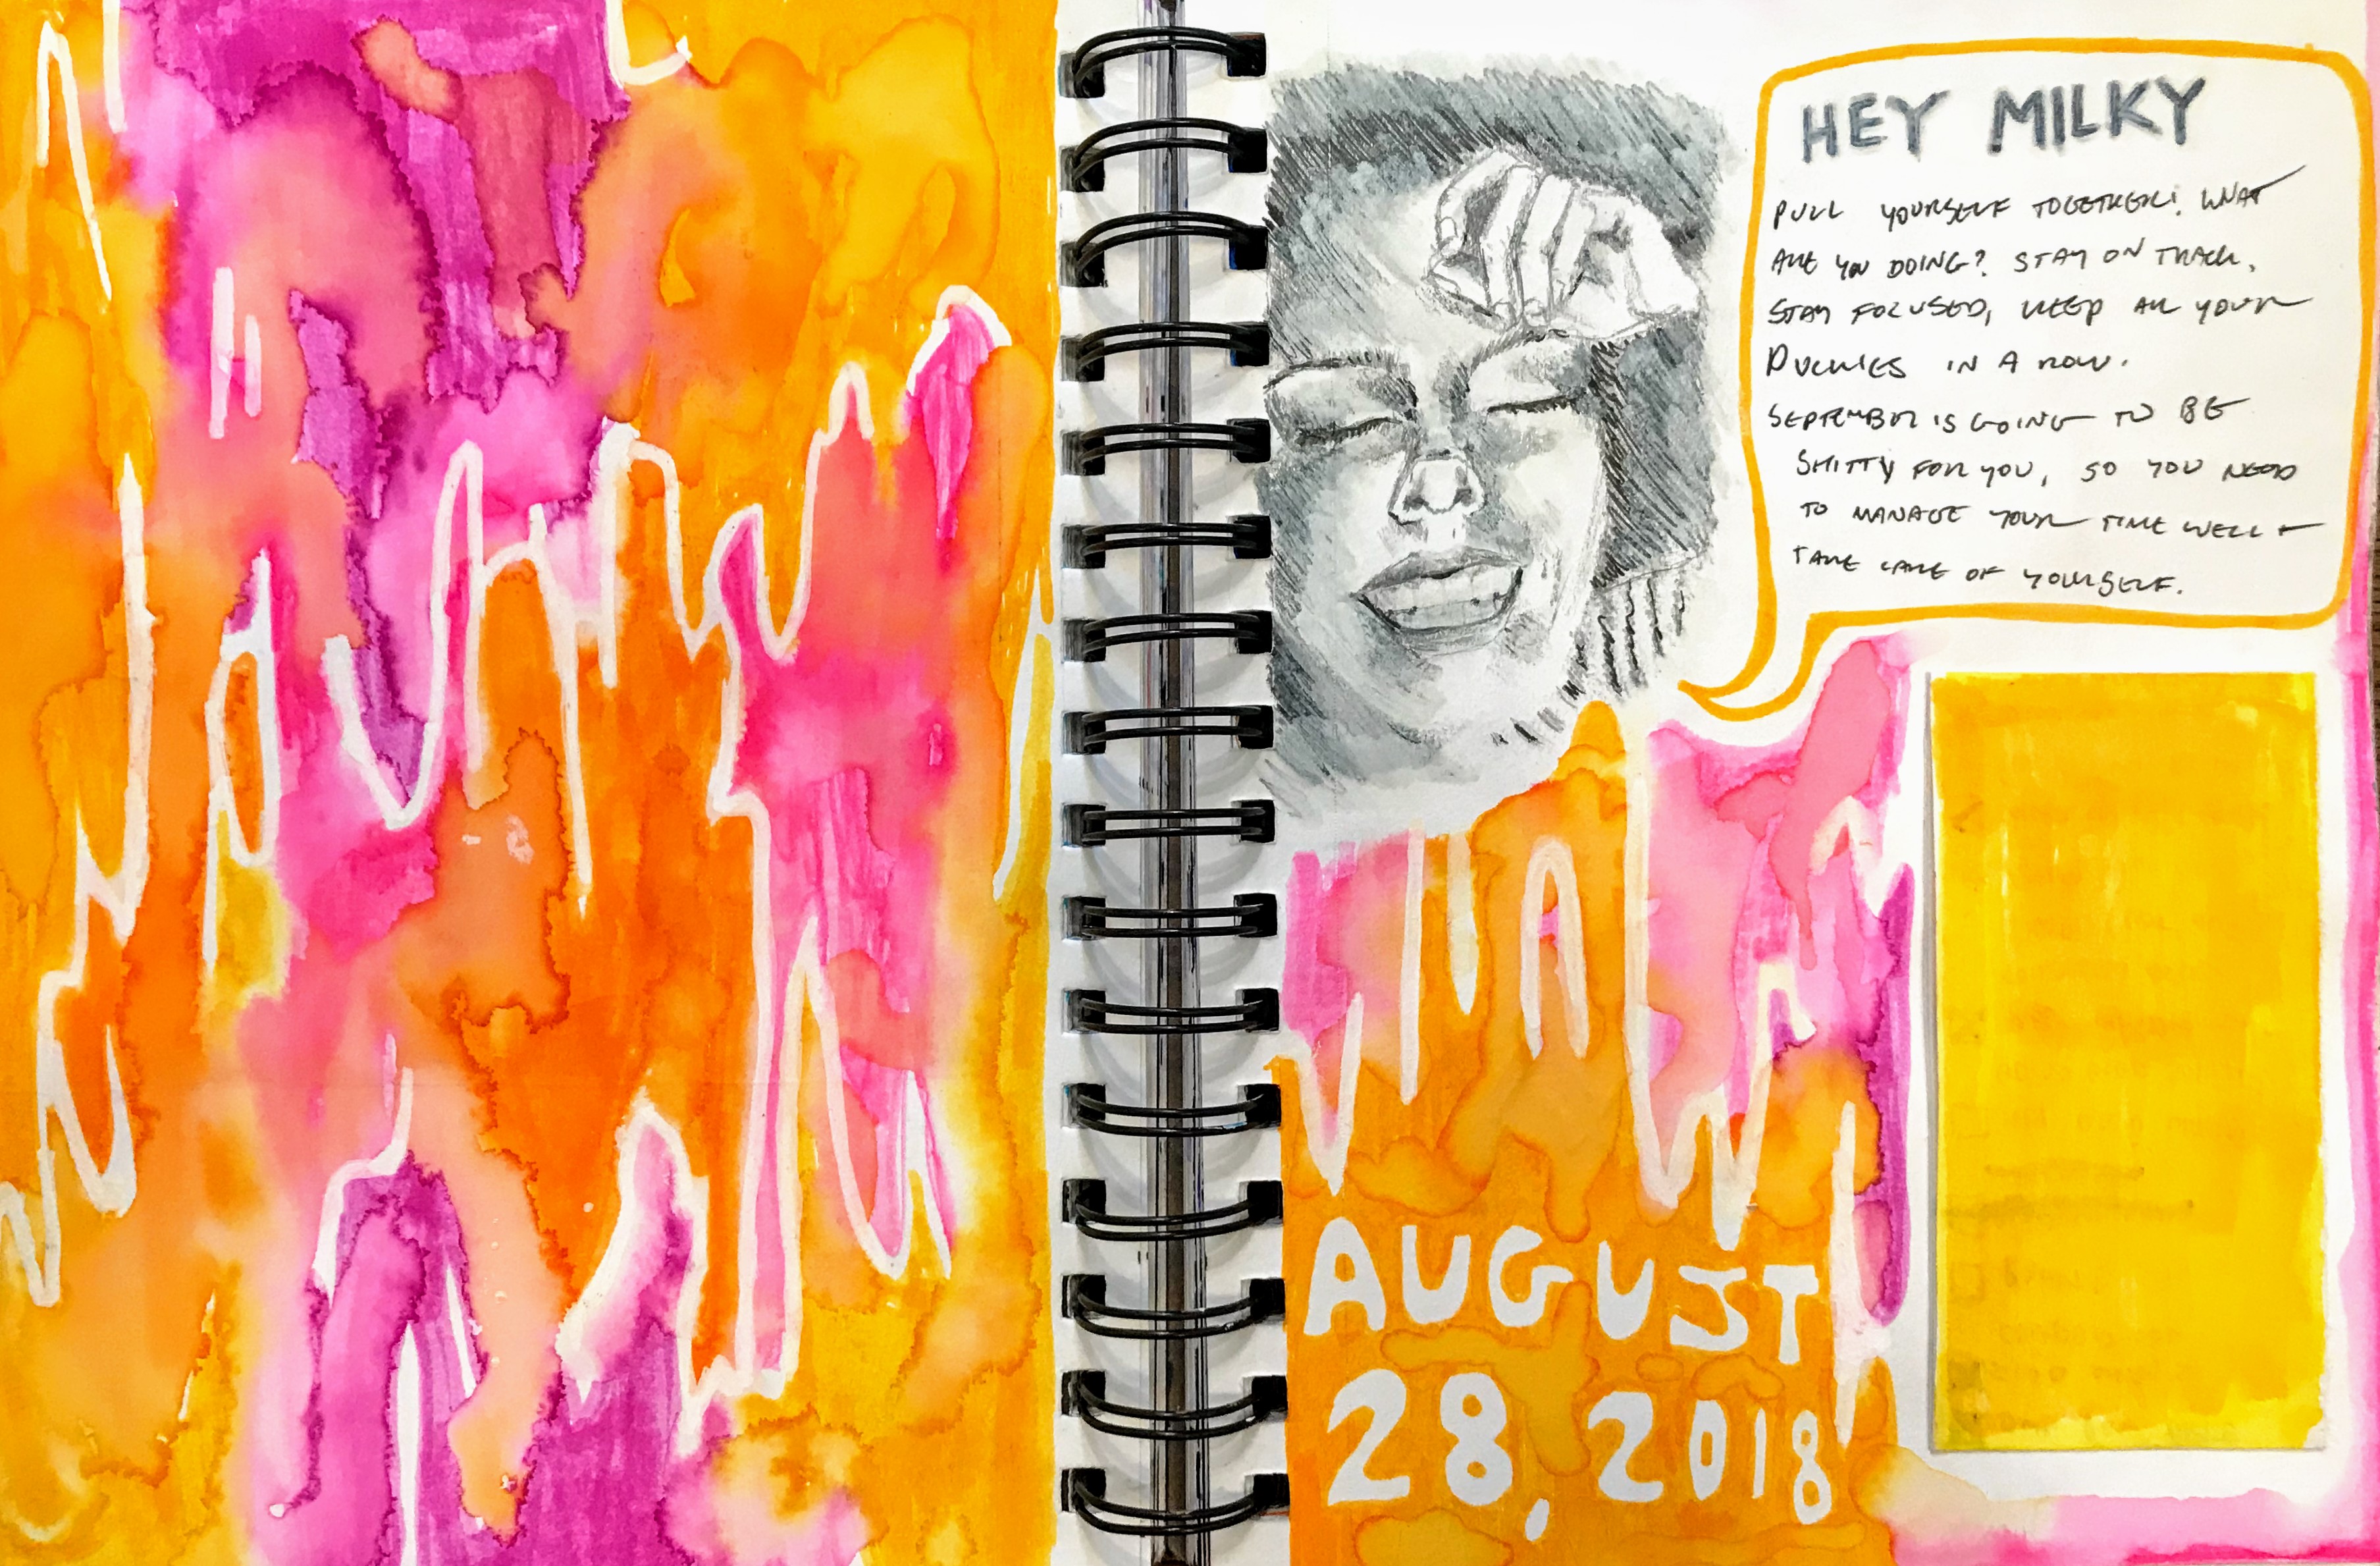 HEY MILKY
PULL YOURSELF TOGETHER! WHAT
ARE YOU DOING? STAY ON TRACK,
STAY FOCUSED, KEEP ALL YOUR
DUCKIES IN A ROW.
SEPTEMBER IS GOING TO BE
SHITTY FOR YOU, SO YOU NEED
TO MANAGE YOUR TIME WELL +
TAKE CARE OF YOURSELF.
AUGUST
28, 2018